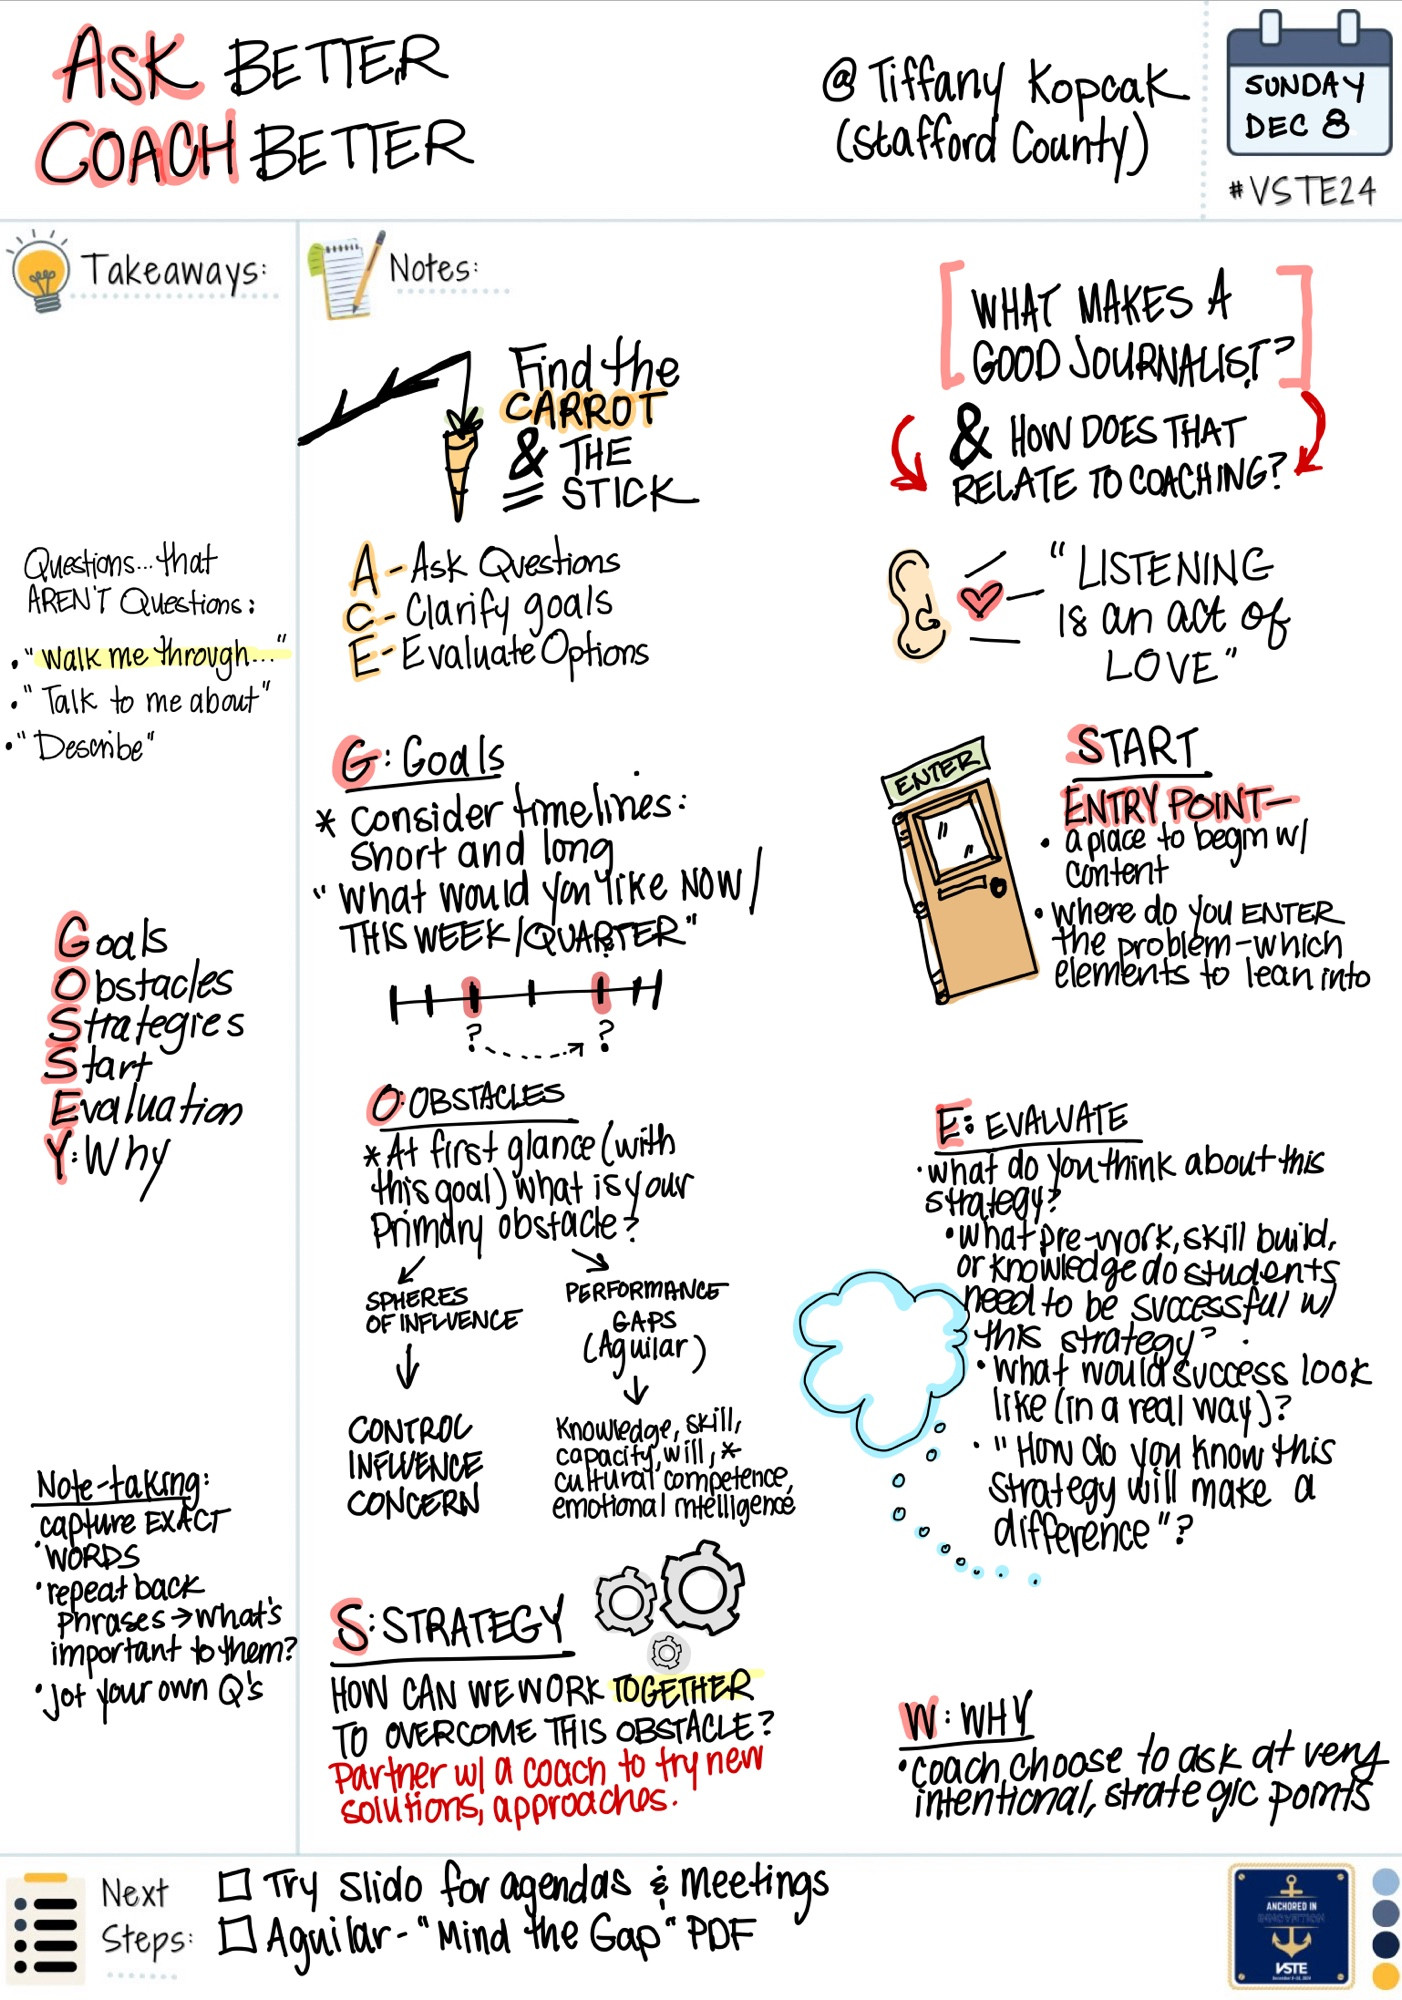 ASK BETTER
COACH BETTER
@ Tiffany Kopcak
(Stafford County)
SUNDAY
DEC 8
#VSTE24
Takeaways:
Questions...that
AREN'T Questions:
• "Walk me through..."
• "Talk to me about"
• "Describe"
Goals
Obstacles
Strategies
Start
Evaluation
Y: Why
Note-taking:
capture EXACT
• WORDS
• repeat back
phrases → what's
important to them?
• jot your own Q's
Notes:
Find the
CARROT
& THE
STICK
A - Ask Questions
C - Clarify goals
E - Evaluate Options
G: Goals
* Consider timelines:
short and long
"What would you like NOW/
THIS WEEK/QUARTER"
? ?
O: OBSTACLES
* At first glance (with
this goal) what is your
Primary obstacle?
SPHERES
OF INFLUENCE
CONTROL
INFLUENCE
CONCERN
PERFORMANCE
GAPS
(Aguilar)
Knowledge, skill,
capacity, will, *
cultural competence,
emotional intelligence
S: STRATEGY
HOW CAN WE WORK TOGETHER
TO OVERCOME THIS OBSTACLE?
Partner w/ a coach to try new
solutions, approaches.
WHAT MAKES A
GOOD JOURNALIST?
& HOW DOES THAT
RELATE TO COACHING?
"LISTENING
is an act of
LOVE"
ENTER
START
ENTRY POINT—
• a place to begin w/
content
• where do you ENTER
the problem - which
elements to lean into
E: EVALUATE
• what do you think about this
strategy?
• what pre-work, skill build,
or knowledge do students
need to be successful w/
this strategy?
• what would success look
like (in a real way)?
• "How do you know this
strategy will make a
difference"?
W: WHY
• coach choose to ask at very
intentional, strategic points
Next
Steps:
Try Slido for agendas & meetings
Aguilar - "Mind the Gap" PDF
ANCHORED IN
INNOVATION
VSTE